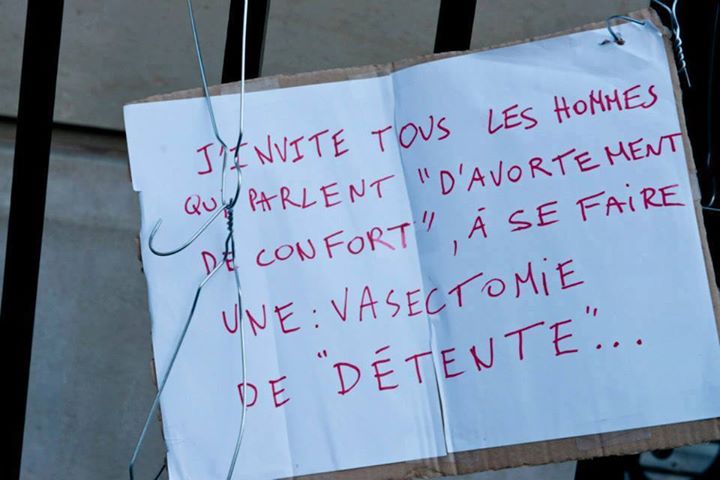 J'INVITE TOUS LES HOMMES
QUI PARLENT "D'AVORTEMENT
DE CONFORT", À SE FAIRE
UNE : VASECTOMIE
DE "DÉTENTE"...